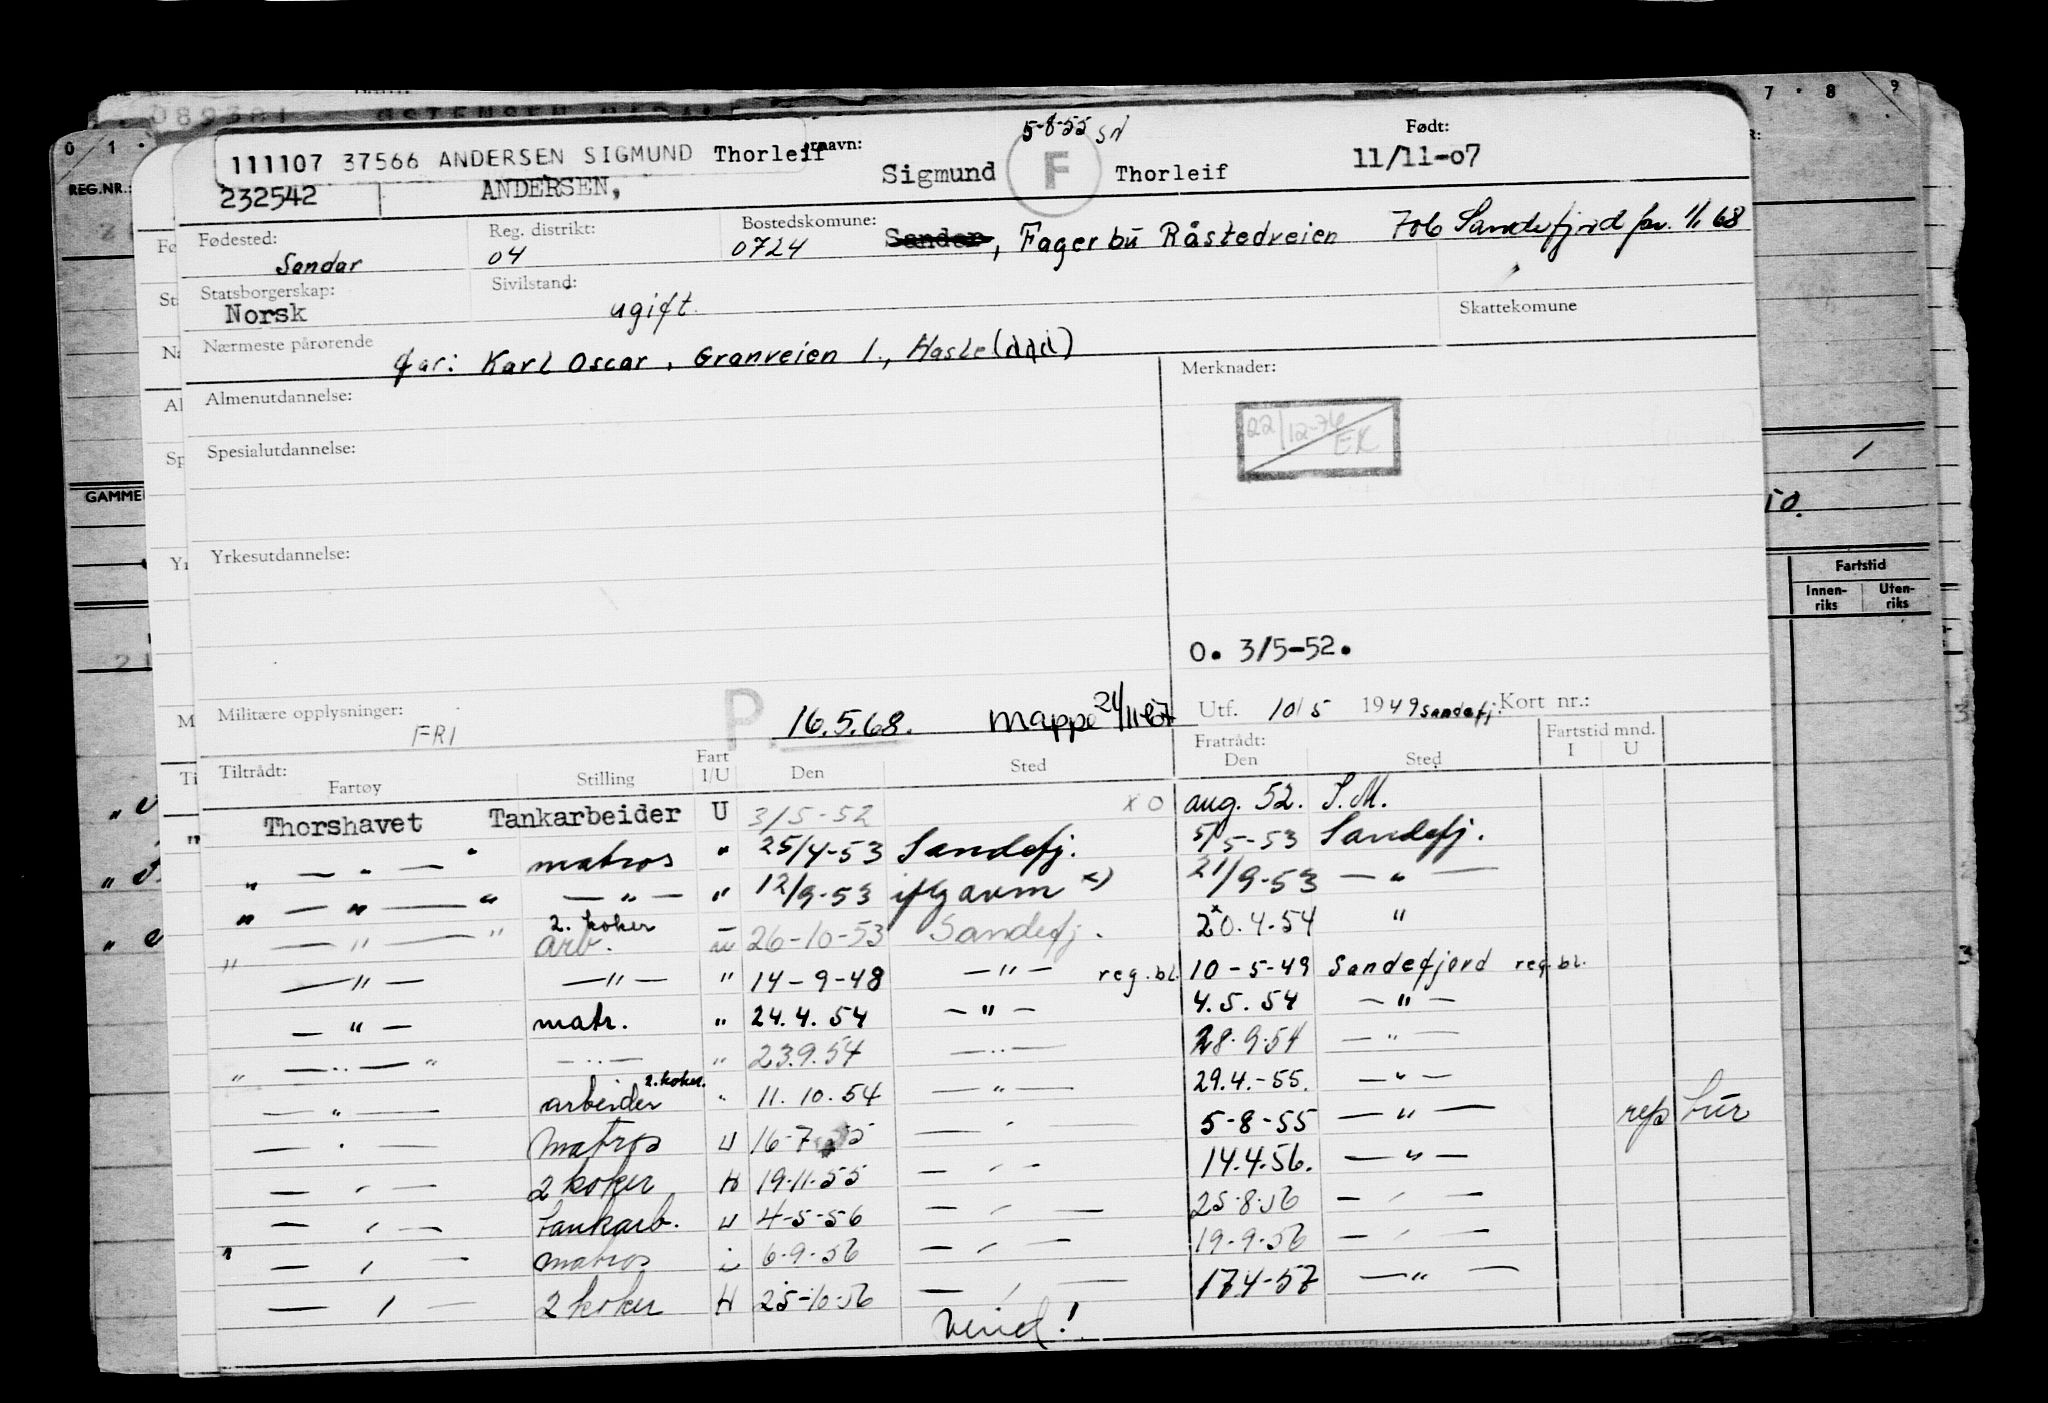 7 · 8 9
089381 ØSTENSEN
0 1
5-8-55 SN
111107 37566 ANDERSEN SIGMUND Thorleif ornavn: Sigmund F Thorleif Født: 11/11-07
REG.NR.: 232542 ANDERSEN,
Fødested: Sandar Reg. distrikt: 04 Bostedskomune: 0724 Sandar, Fagerbu Råstedveien 706 Sandefjord 1/1 68
Statsborgerskap: Norsk Sivilstand: ugift Skattekomune
Nærmeste pårørende far: Karl Oscar, Granveien 1., Hasle (død)
Almenutdannelse: Merknader:
22/12-76 EK
Spesialutdannelse:
GAMMEL
Yrkesutdannelse:
Fartstid
Innen-riks Uten-riks
O. 3/5-52.
Militære opplysninger: FRI P. 16.5.68. Mappe 24/11-67 Utf. 10/5 1949 Sandefj. Kort nr.:
Tiltrådt: Fartøy Stilling Fart I/U Den Sted Fratrådt: Den Sted Fartstid mnd. I U
Thorshavet Tankarbeider U 3/5-52 x O aug. 52. S.M.
" — " — " matros " 25/4-53 Sandefj. 5/5-53 Sandefj.
" — " — " — " — " 12/9-53 iflg avm x) 21/9-53 — " —
" — " — " 2. koker arb. 26-10-53 Sandefj. 20.4.54 "
— " — — " — " 14-9-48 — " — reg.bl. 10-5-49 Sandefjord reg.bl.
— " — matr. " 24.4.54 — " — 4.5.54 — " —
" — " — " — " — " 23.9.54 — " — 28.9.54 — " —
— " — arbeider 2.koker. " 11.10.54 — " — 29.4.-55. — " —
— " — Matros U 16-7-55 — " — 5-8-55 — " — rep tur
— " — 2 koker H 19-11-55 — " — 14.4.56. — " —
— " — tankarb. U 4-5-56 — " — 25-8-56 — " —
" — " — matros U 6-9-56 — " — 19-9-56 — " —
— " — 2 koker H 25-10-56 — " — 17.4-57 — " —
Vend!